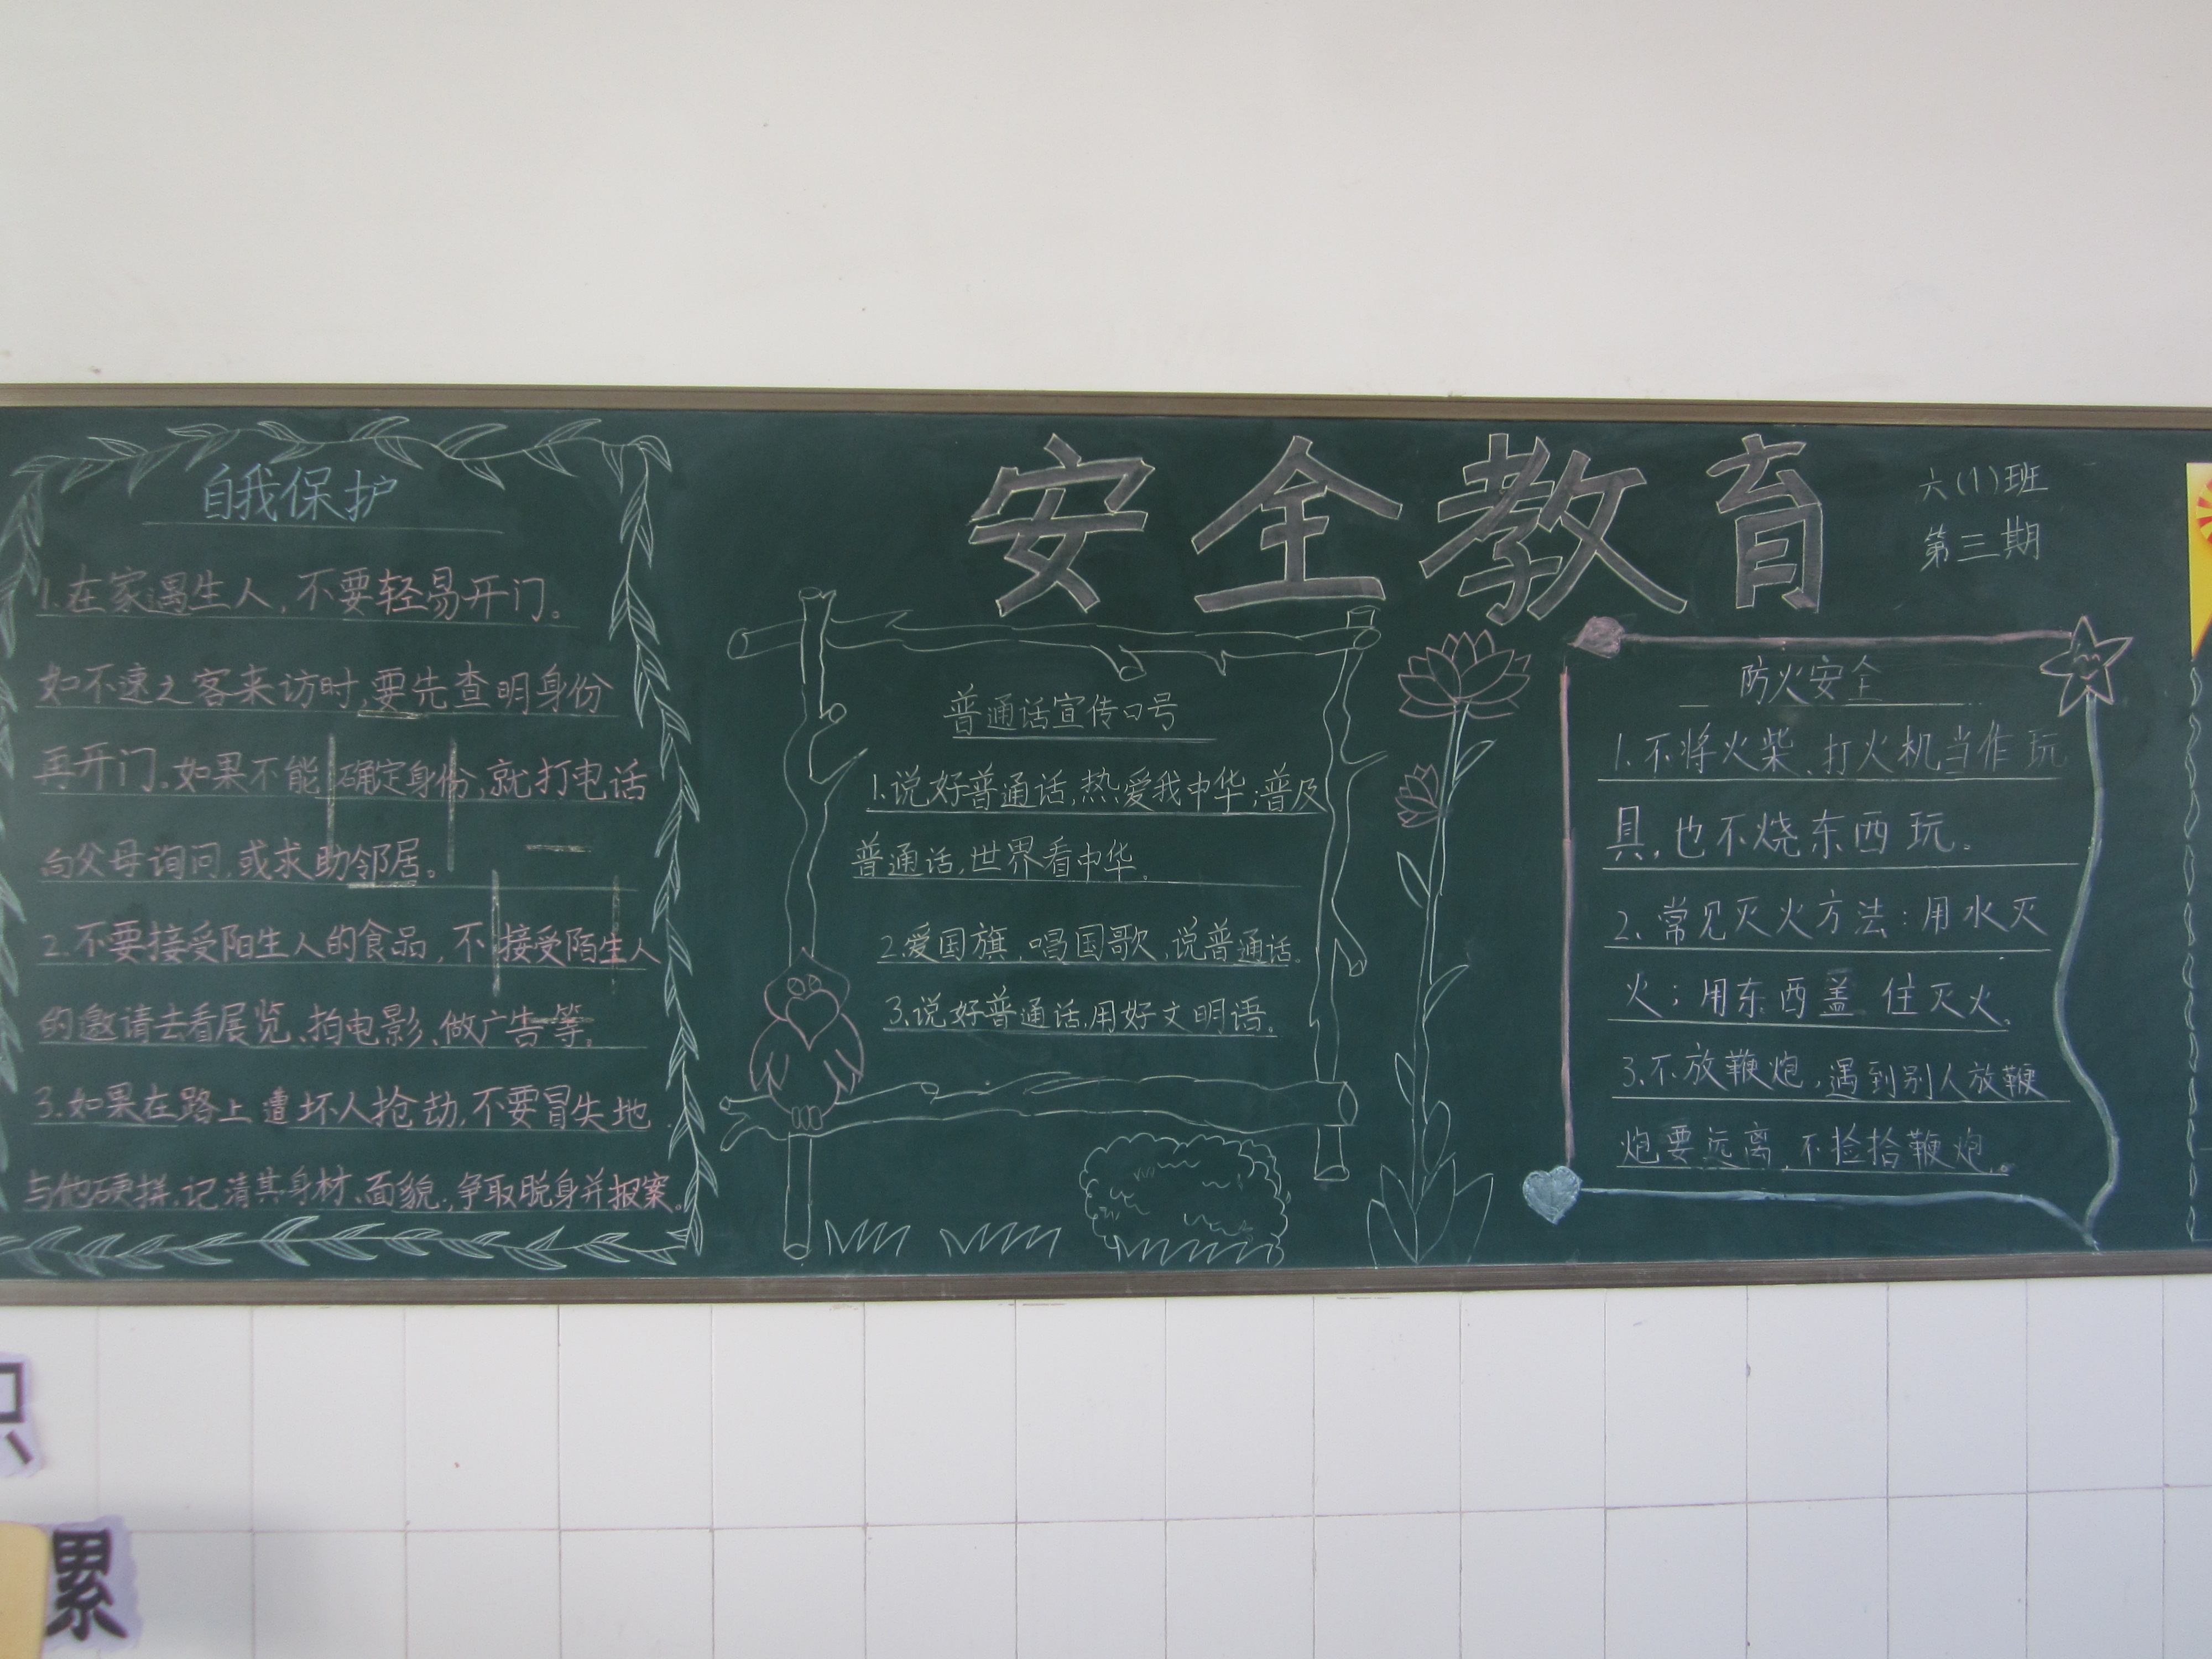 安全教育
六(1)班
第三期
自我保护
1.在家遇生人,不要轻易开门。
如不速之客来访时,要先查明身份
再开门。如果不能确定身份,就打电话
向父母询问,或求助邻居。
2.不要接受陌生人的食品,不接受陌生人
的邀请去看展览、拍电影、做广告等。
3.如果在路上遭坏人抢劫,不要冒失地
与他硬拼,记清其身材、面貌,争取脱身并报案。
普通话宣传口号
1.说好普通话,热爱我中华;普及
普通话,世界看中华。
2.爱国旗,唱国歌,说普通话。
3.说好普通话,用好文明语。
防火安全
1.不将火柴、打火机当作玩
具,也不烧东西玩。
2.常见灭火方法:用水灭
火;用东西盖住灭火。
3.不放鞭炮,遇到别人放鞭
炮要远离,不捡拾鞭炮。
累